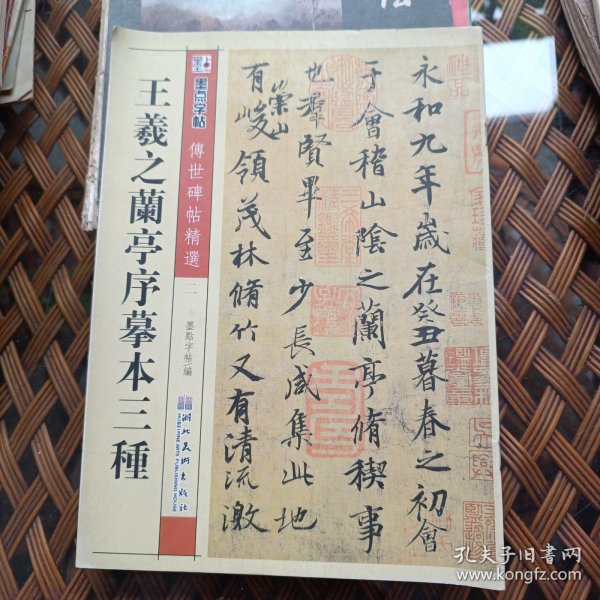 王羲之蘭亭序摹本三種
墨点字帖
傳世碑帖精選
二
墨點字帖 編
湖北美術出版社
HUBEI FINE ARTS PUBLISHING HOUSE
永和九年歲在癸丑暮春之初會
于會稽山陰之蘭亭脩稧事
也群賢畢至少長咸集此地
有崇山峻領茂林脩竹又有清流激
孔夫子旧书网
www.kongfz.com